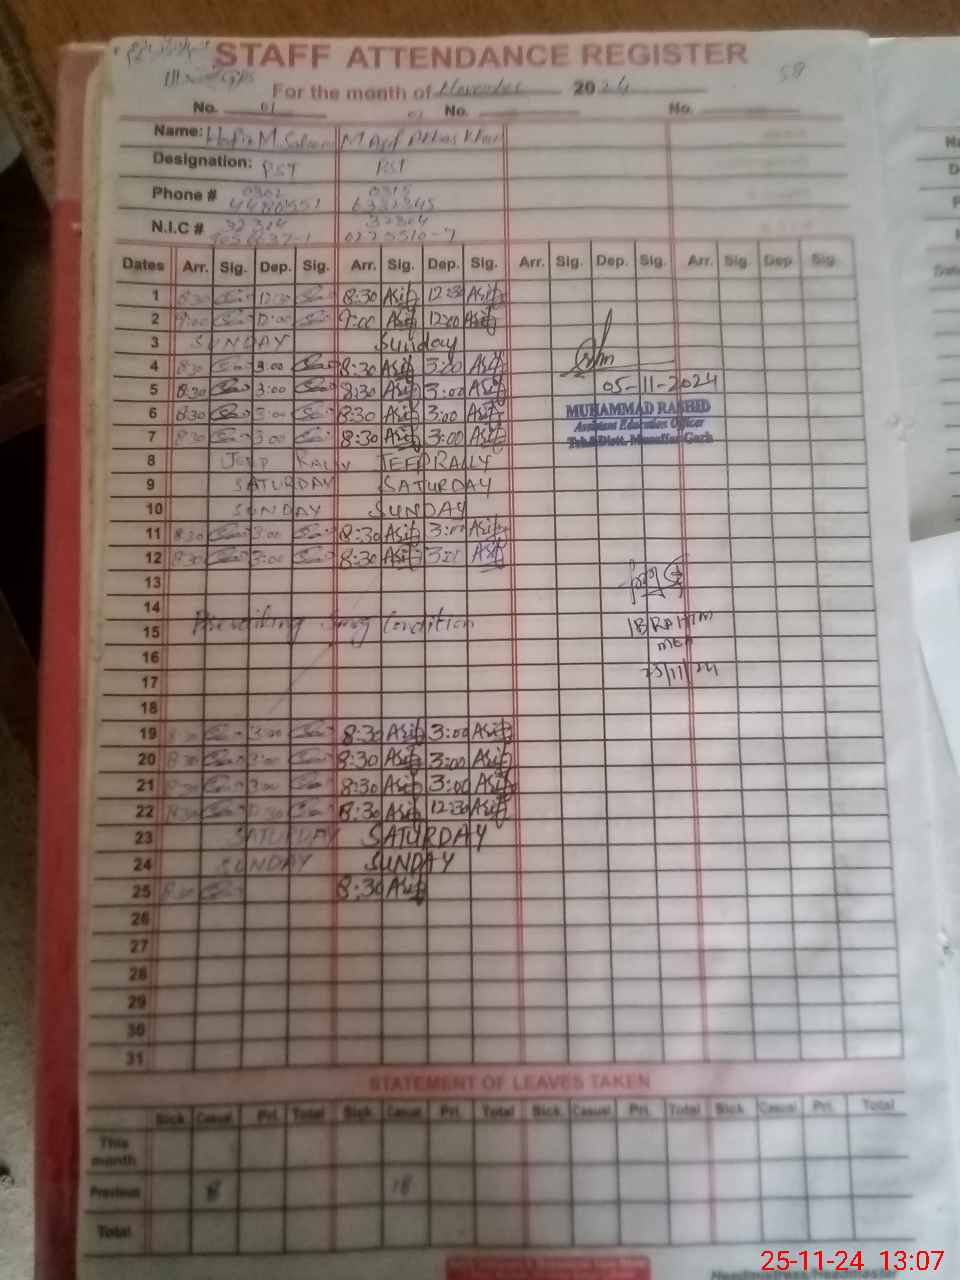 STAFF ATTENDANCE REGISTER
58
For the month of November 2024
No. 01 No. 02 No.
Name: Hafiz M. Saleem M Asif Abbas Khan
Designation: PST PST
Phone # 0302 0315
N.I.C # 32304 32304
0275510-7
Dates Arr. Sig. Dep. Sig. Arr. Sig. Dep. Sig. Arr. Sig. Dep. Sig. Arr. Sig. Dep Sig.
1 8:30 12:30 8:30 Asif 12:30 Asif
2 9:00 12:00 9:00 Asif 12:00 Asif
3 SUNDAY Sunday
4 8:30 3:00 8:30 Asif 3:00 Asif
5 8:30 3:00 8:30 Asif 3:00 Asif
05-11-2024
6 8:30 3:00 8:30 Asif 3:00 Asif
MUHAMMAD RASHID
Assistant Education Officer
7 8:30 3:00 8:30 Asif 3:00 Asif
Teh&Distt. Muzaffar Garh
8 JEEP RALLY JEEP RALLY
9 SATURDAY SATURDAY
10 SUNDAY SUNDAY
11 8:30 3:00 8:30 Asif 3:00 Asif
12 8:30 3:00 8:30 Asif Asif
13
14
15 Smog Condition
IBRAHIM
MEA
16
17
25/11/24
18
19 8:30 3:00 8:30 Asif 3:00 Asif
20 8:30 3:00 8:30 Asif 3:00 Asif
21 8:30 3:00 8:30 Asif 3:00 Asif
22 8:30 12:30 8:30 Asif 12:30 Asif
23 SATURDAY SATURDAY
24 SUNDAY SUNDAY
25 8:30 8:30 Asif
26
27
28
29
30
31
STATEMENT OF LEAVES TAKEN
Sick Casual Pri. Total Sick Casual Pri. Total Sick Casual Pri. Total Sick Casual Pri. Total
This
month
Previous 8 18
Total
Headmistress/Headmaster
25-11-24 13:07